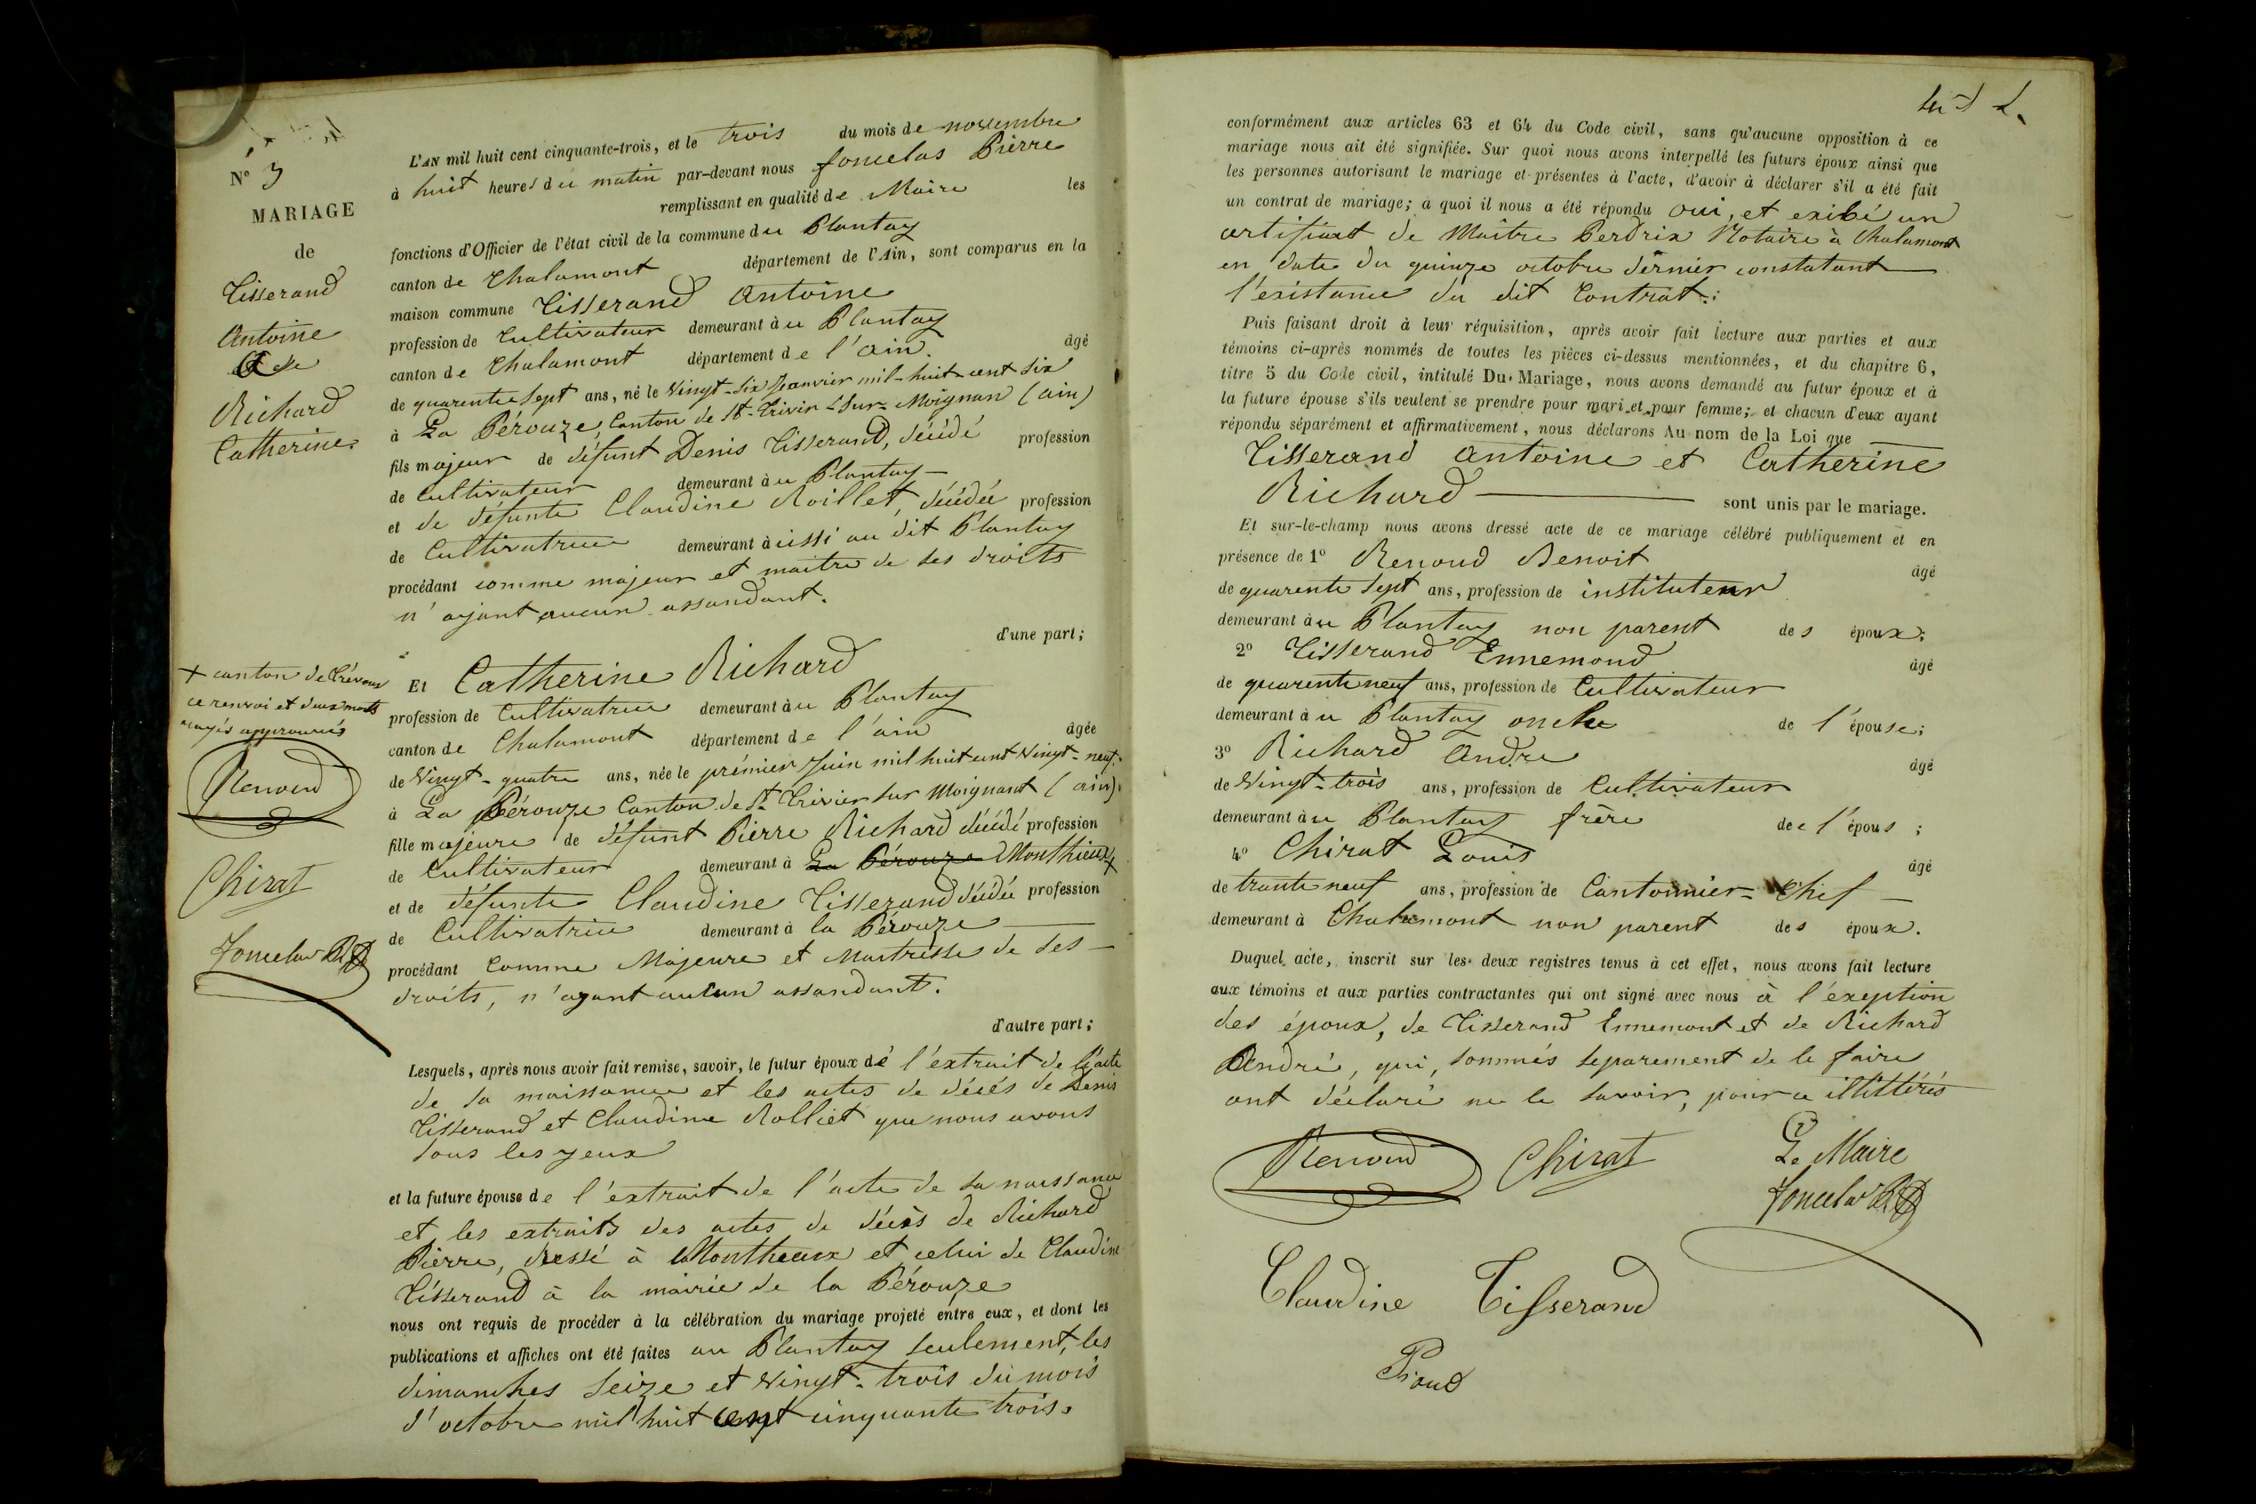 N° 3
MARIAGE
de
Tisserand
Antoine
et de
Richard
Catherine
L'AN mil huit cent cinquante-trois, et le trois du mois de novembre
à huit heures du matin par-devant nous Joncelas Pierre
remplissant en qualité de Maire les
fonctions d'Officier de l'état civil de la commune du Plantay
canton de Chalamont département de l'Ain, sont comparus en la
maison commune Tisserand Antoine
profession de Cultivateur demeurant à u Plantay
canton de Chalamont département de l'ain. âgé
de quarente sept ans, né le Vingt-six Janvier mil-huit-cent six
à La Pérouze Canton de St-Trivier-Sur-Moignan (ain)
fils majeur de défunt Denis Tisserand, décédé profession
de Cultivateur demeurant à u Plantay
et de défunte Claudine Roillet, décédée profession
de Cultivatrice demeurant à ussi au dit Plantay
procédant comme majeur et maitre de ses droits
n'ajant aucun assandant.
d'une part;
Et Catherine Richard
profession de Cultivatrice demeurant à u Plantay
canton de Chalamont département de l'ain âgée
de Vingt-quatre ans, née le prémier Juin mil huit cent Vingt-neuf.
à La Pérouze Canton de St Trivier sur Moignant (ain).
fille majeure de défunt Pierre Richard décédé profession
de Cultivateur demeurant à La Pérouze Monthieux +
et de défunte Claudine Tisserand décédée profession
de Cultivatrice demeurant à la Pérouze
procédant Comme Majeure et Maitresse de ses
droits, n'ayant aucun assandant.
d'autre part;
+ canton de Trévoux
ce renvoi et deux mots
rayés approuvés
Renoud
Chirat
Joncelas
Lesquels, après nous avoir fait remise, savoir, le futur époux de l'extrait de l'acte
de sa naissance et les actes de décés de Denis
Tisserand et Claudine Rolliet que nous avons
sous les yeux
et la future épouse de l'extrait de l'acte de sa naissance
et les extraits des actes de décès de Richard
Pierre, dressé à Montheaux et celui de Claudine
Tisserand à la mairie de la Pérouze
nous ont requis de procéder à la célébration du mariage projeté entre eux, et dont les
publications et affiches ont été faites au Plantay seulement, les
dimanches seize et vingt-trois du mois
d'octobre mil huit cent cinquante trois.
conformément aux articles 63 et 64 du Code civil, sans qu'aucune opposition à ce
mariage nous ait été signifiée. Sur quoi nous avons interpellé les futurs époux ainsi que
les personnes autorisant le mariage et présentes à l'acte, d'avoir à déclarer s'il a été fait
un contrat de mariage; a quoi il nous a été répondu oui, et exibé un
certificat de Maître Perdrix Notaire à Chalamont
en date du quinze octobre dernier constatant
l'existance du dit Contrat.:
Puis faisant droit à leur réquisition, après avoir fait lecture aux parties et aux
témoins ci-après nommés de toutes les pièces ci-dessus mentionnées, et du chapitre 6,
titre 5 du Code civil, intitulé Du Mariage, nous avons demandé au futur époux et à
la future épouse s'ils veulent se prendre pour mari et pour femme; et chacun d'eux ayant
répondu séparément et affirmativement, nous déclarons Au nom de la Loi que
Tisserand Antoine et Catherine
Richard sont unis par le mariage.
Et sur-le-champ nous avons dressé acte de ce mariage célébré publiquement et en
présence de 1° Renoud Benoit âgé
de quarente sept ans, profession de instituteur
demeurant à u Plantay non parent des époux;
2° Tisserand Ennemond âgé
de quarente neuf ans, profession de Cultivateur
demeurant à u Plantay oncle de l'épouse;
3° Richard Andre âgé
de Vingt-trois ans, profession de Cultivateur
demeurant à u Plantay frère de e l'épous ;
4° Chirat Louis âgé
de trante neuf ans, profession de Cantonnier-Chef
demeurant à Chalamont non parent des époux.
Duquel acte, inscrit sur les deux registres tenus à cet effet, nous avons fait lecture
aux témoins et aux parties contractantes qui ont signé avec nous à l'exeption
des époux, de Tisserand Ennemont et de Richard
André, qui, sommés separement de le faire
ont déclaré ne le savoir, pour ce illittérés
Renoud Chirat Le Maire
Joncelas
Claudine Tisserand